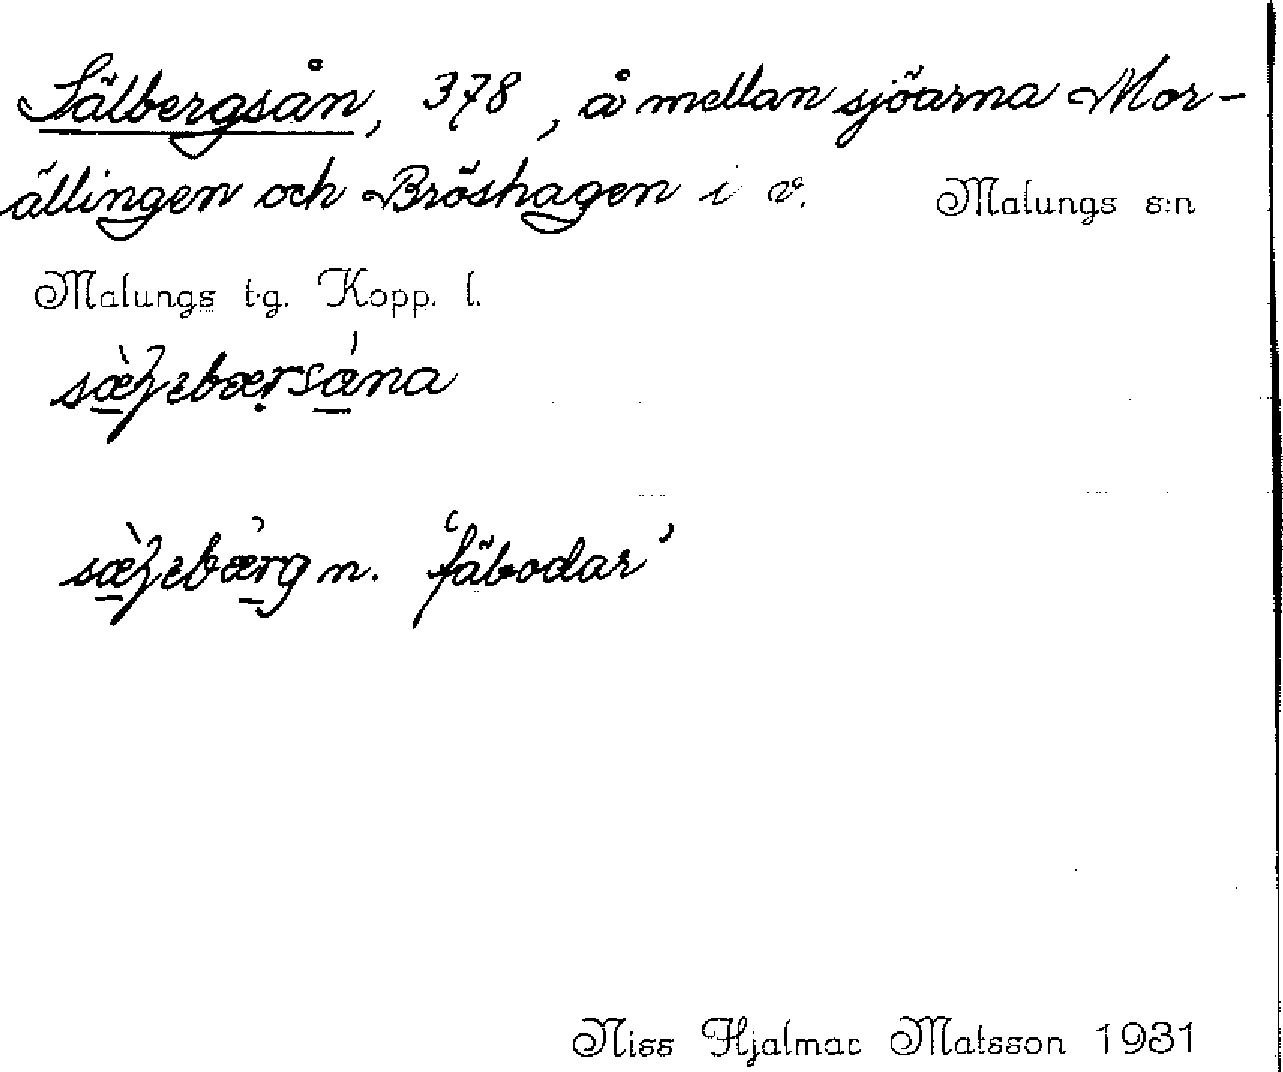 Sälbergsån, 378, å mellan sjöarna Mor-
ällingen och Bröshagen i v. Malungs s:n
Malungs tg. Kopp. l.
fäbodar'
Niss Hjalmar Matsson 1931